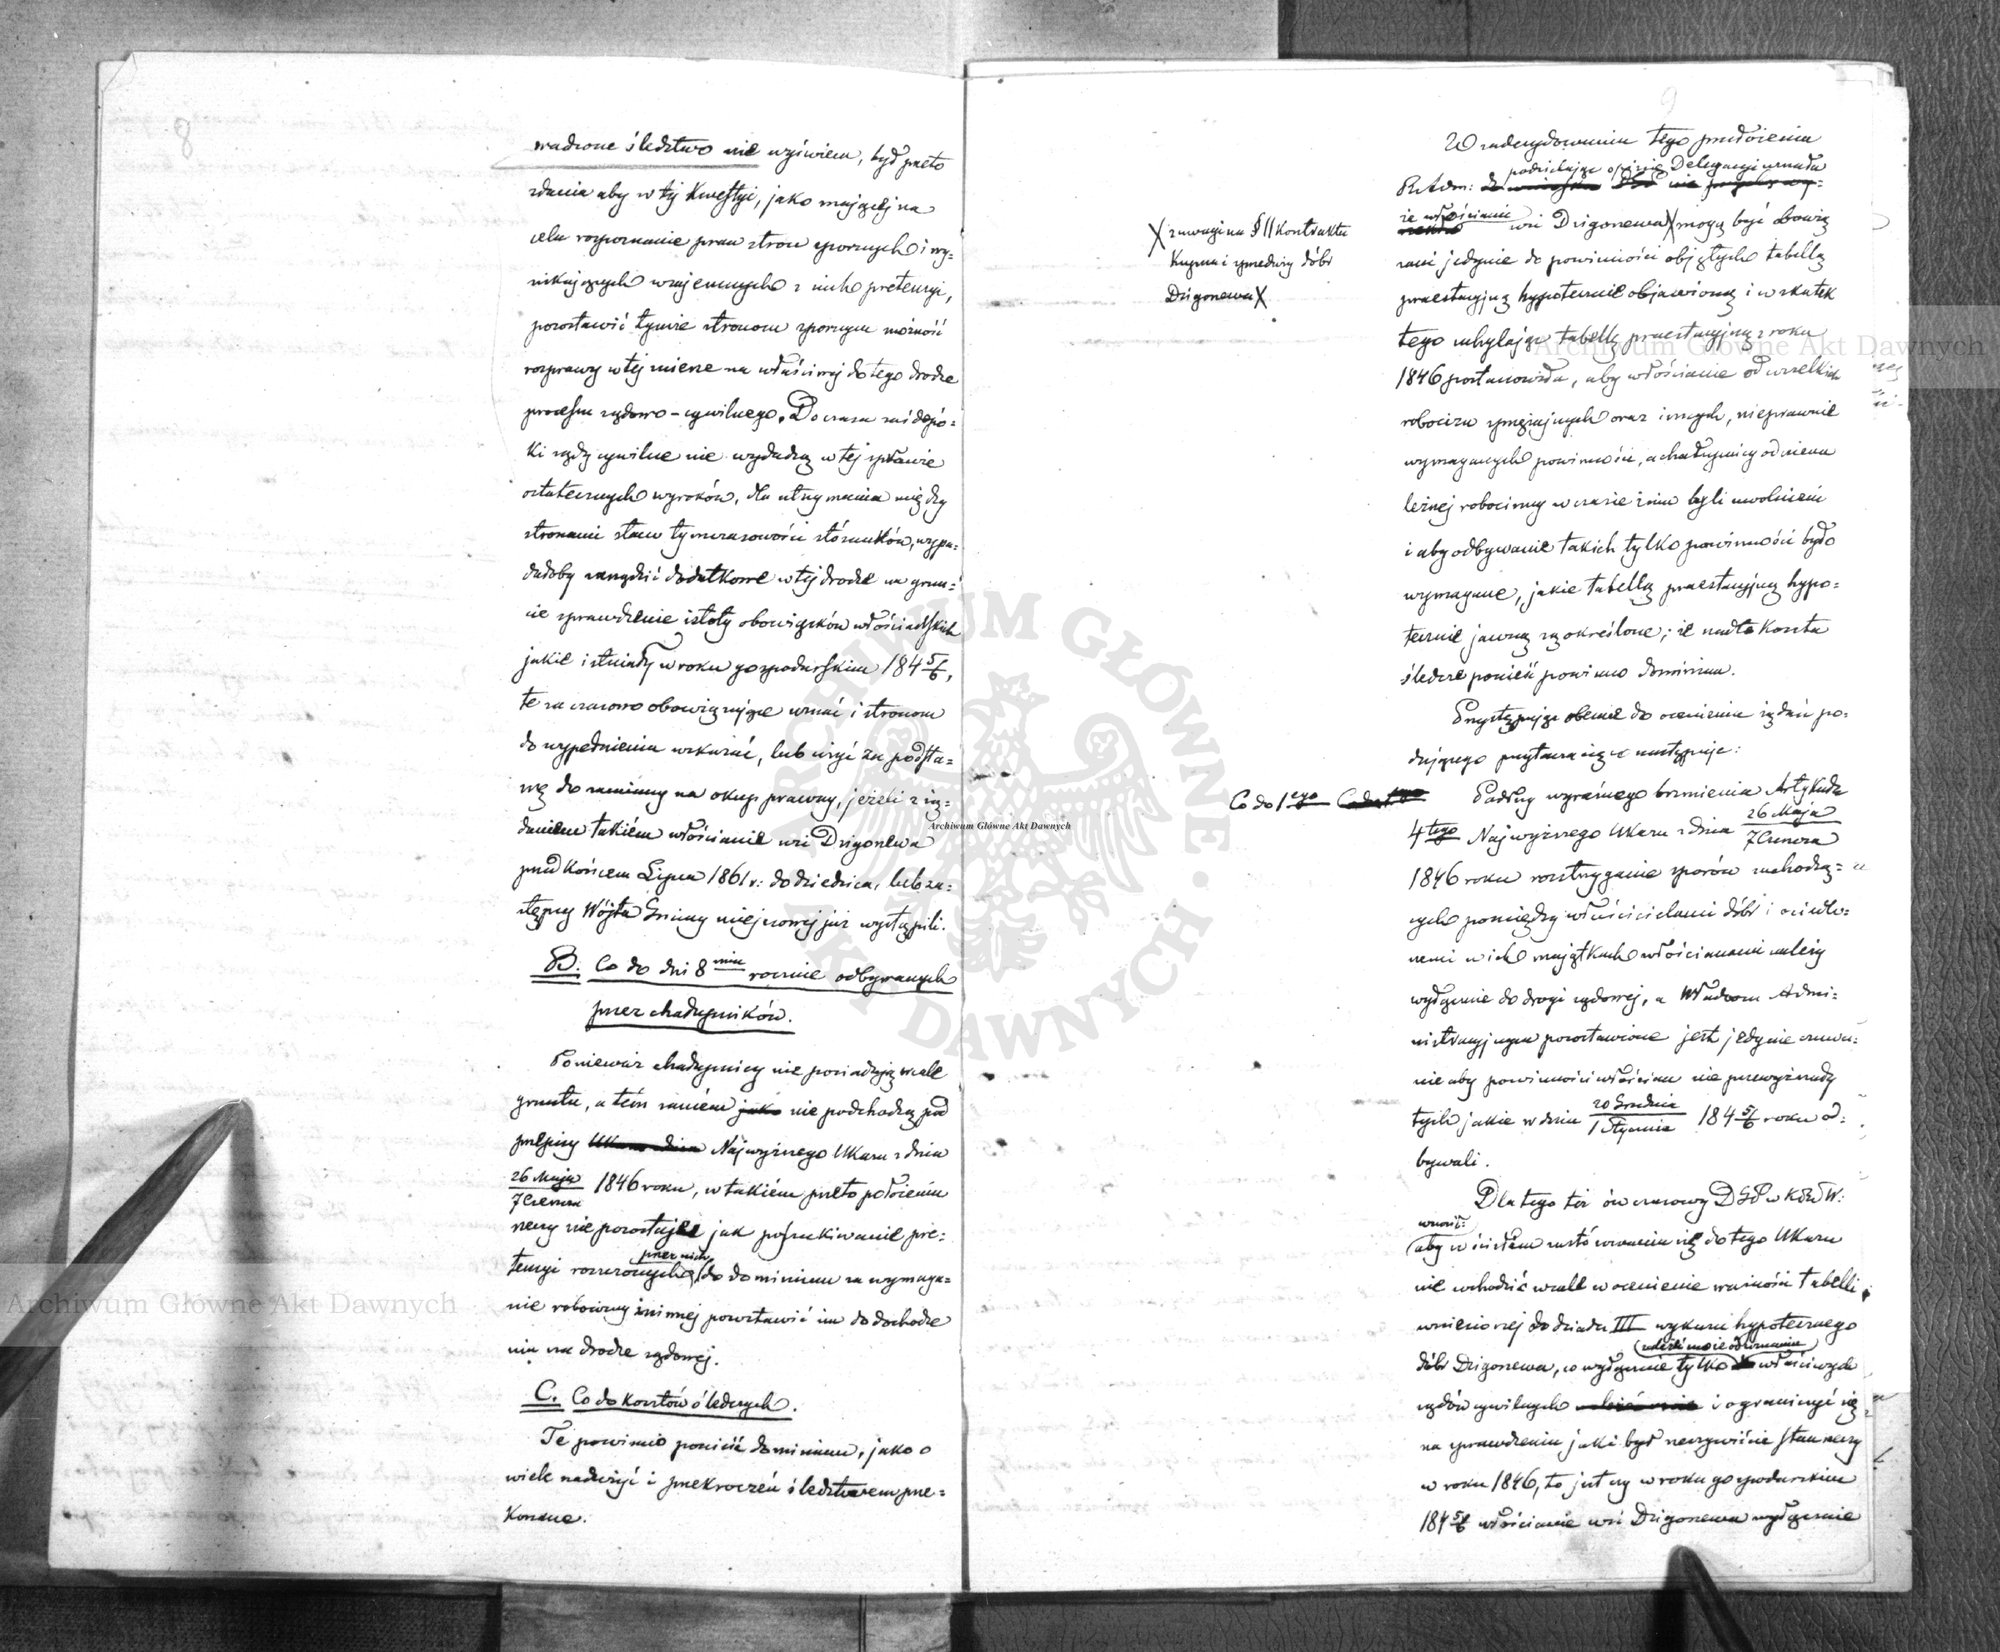 8
wadzone śledztwo nie wyświeca, był przeto
zdania aby w tej kwestyi, jako mającej na
celu rozpoznanie praw stron spornych i wy=
nikających wzajemnych z nich pretensyi,
pozostawić tymże stronom spornym możność
rozprawy w tej mierze na właściwej do tego drodze
processu sądowo-cywilnego. Do czasu zaś dopó=
ki sądy cywilne nie wydadzą w tej sprawie
ostatecznych wyroków, dla utrzymania między
stronami stanu tymczasowości stósunków, wypa=
dałoby zarządzić dodatkowe w tej drodze na grun=
cie sprawdzenie istoty obowiązków włościańskich
jakie istniały w roku gospodarskim 184 5/6,
te za czasowo obowiązujące uznać i stronom
do wypełnienia wskazać, lub wziąć za podsta=
wę do zamiany na okup prawny, jeżeli z żą=
daniem takiém włościanie wsi Drigonewa
przed końcem Lipca 1861 r: do dziedzica, lub za=
stępcy Wójta Gminy miejscowej już wystąpili.
B. Co do dni 8miu rocznie odbywanych
przez chałupników.
Ponieważ chałupnicy nie posiadają wcale
gruntu, a tém samém jako nie podchodzą pod
przepisy Ukazu dnia Najwyższego Ukazu z dnia
26 Maja/7 Czerwca 1846 roku, w takiém przeto położeniu
rzeczy nie pozostaje jak poszukiwanie pre=
przez nich
tensyi roszczonych do dominium za wymaga=
nie robocizny żniwnej pozostawić im do dochodze
nia na drodze sądowej.
C. Co do kosztów śledczych.
Te powinno ponieść dominium, jako o
wiele nadużyć i przekroczeń śledztwem prze=
konane.
9
W zadecydowaniu tego przełożenia
podzielając opinię Delegacyi uznała
Rz. Adm: do wniosku DSP nie przychyla się
że włościanie
wsi Drigonewa X mogą być obowią
zani jedynie do powinności objętych tabellą
praestacyjną hypotecznie objawioną i w skutek
tego uchylając tabellę praestacyjną z roku
1846 postanowiła, aby włościanie od wszelkich
robocizn sprzężajnych oraz innych, nieprawnie
wymaganych powinności, a chałupnicy od niena
leżnej robocizny w czasie żniw byli uwolnieni
i aby odbywanie takich tylko powinności było
wymagane, jakie tabellą praestacyjną hypo=
tecznie jawną są określone; że nadto koszta
śledcze ponieść powinno dominium.
X z uwagi na § 11 Kontraktu
Kupna i sprzedaży dóbr
Drigonewa X
Przystępując obecnie do ocenienia żądań po=
dającego przytacza się co następuje:
Co do 1ego
Podług wyraźnego brzmienia Artykułu
4tego Najwyższego Ukazu z dnia 26 Maja/7 Czerwca
1846 roku rozstrzyganie sporów zachodzą=
cych pomiędzy właścicielami dóbr i osiedlo=
nemi w ich majątkach włościanami należy
wyłącznie do drogi sądowej, a Władzom Admi=
nistracyjnym pozostawione jest jedynie czuwa=
nie aby powinności włościan nie przewyższały
tych jakie w dniu 20 Grudnia/1 Stycznia 184 5/6 roku od=
bywali.
Dla tego też ówczesny DSP w KRSW:
wnosił:
aby w ścisłem zastósowaniu się do tego Ukazu
nie wchodzić wcale w ocenienie ważności tabelli
wniesionej do działu III wykazu hypotecznego
należeć może od uznania
dóbr Drigonewa, co wyłącznie tylko do właściwych
sądów cywilnych należeć może i ograniczyć się
na sprawdzeniu jaki był rzeczywiście stan rzeczy
w roku 1846, to jest czy w roku gospodarskim
184 5/6 włościanie wsi Drigonewa wyłącznie
Archiwum Główne Akt Dawnych
Archiwum Główne Akt Dawnych
Archiwum Główne Akt Dawnych
ARCHIWUM GŁÓWNE AKT DAWNYCH